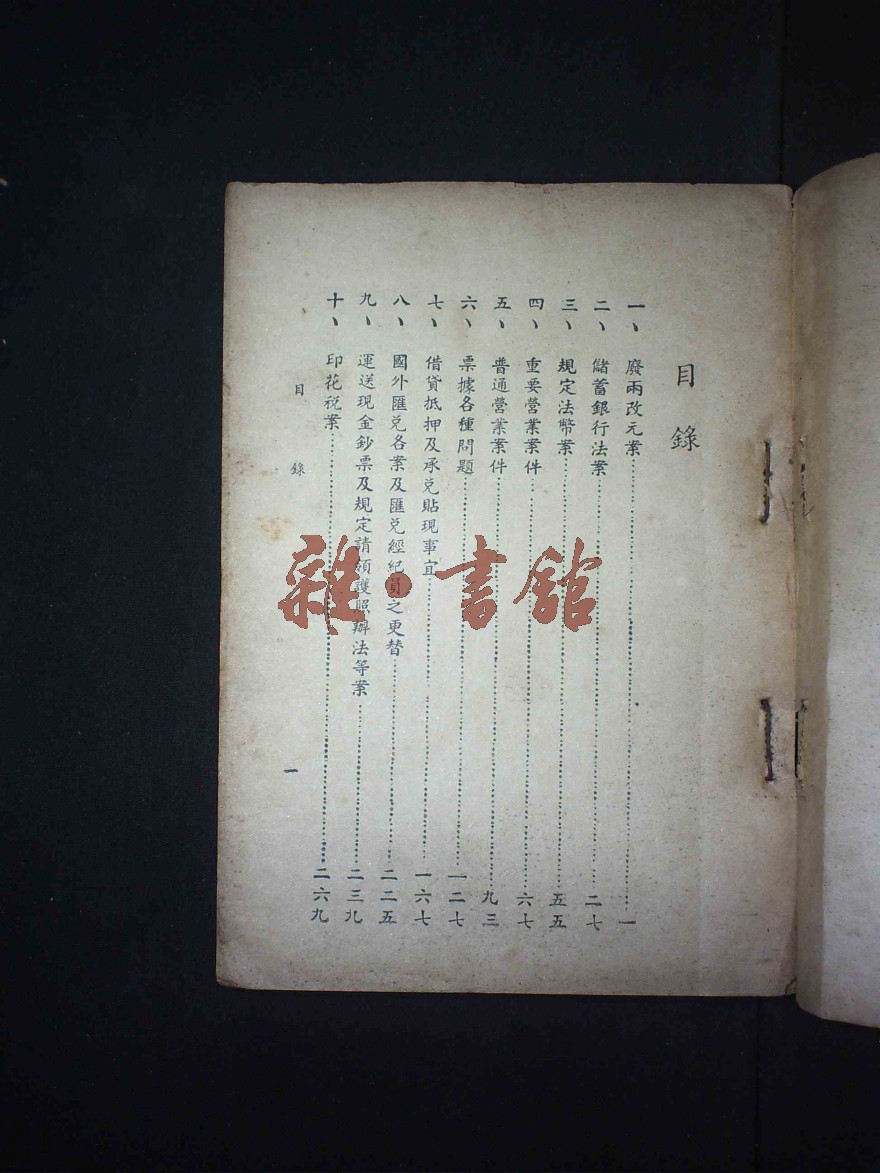 目錄
一、廢兩改元案……一
二、儲蓄銀行法案……二七
三、規定法幣案……五五
四、重要營業案件……六七
五、普通營業案件……九三
六、票據各種問題……一二七
七、借貸抵押及承兌貼現事宜……一六七
八、國外匯兌各案及匯兌經紀員之更替……二二五
九、運送現金鈔票及規定請領護照辦法等案……二三九
十、印花稅案……二六九
目錄
一
雜·書館